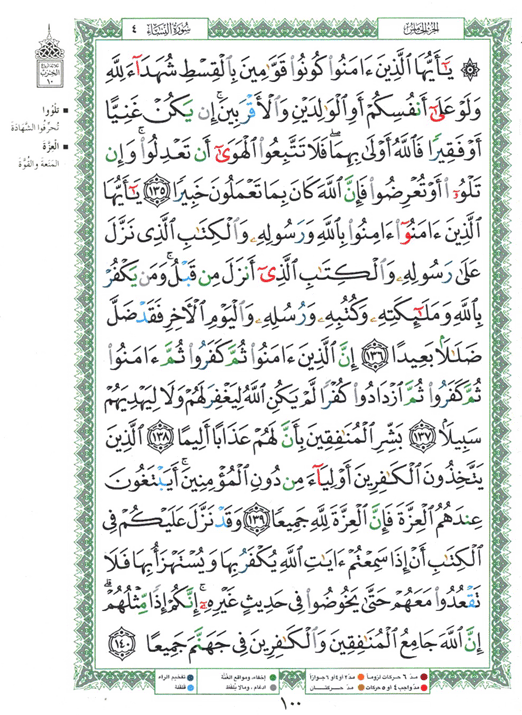 الجزء الخامس
سورة النساء
٤
۞ يَٰٓأَيُّهَا ٱلَّذِينَ ءَامَنُوا۟ كُونُوا۟ قَوَّٰمِينَ بِٱلْقِسْطِ شُهَدَآءَ لِلَّهِ
وَلَوْ عَلَىٰٓ أَنفُسِكُمْ أَوِ ٱلْوَٰلِدَيْنِ وَٱلْأَقْرَبِينَ ۚ إِن يَكُنْ غَنِيًّا
أَوْ فَقِيرًا فَٱللَّهُ أَوْلَىٰ بِهِمَا ۖ فَلَا تَتَّبِعُوا۟ ٱلْهَوَىٰٓ أَن تَعْدِلُوا۟ ۚ وَإِن
تَلْوُۥٓا۟ أَوْ تُعْرِضُوا۟ فَإِنَّ ٱللَّهَ كَانَ بِمَا تَعْمَلُونَ خَبِيرًا ١٣٥ يَٰٓأَيُّهَا
ٱلَّذِينَ ءَامَنُوٓا۟ ءَامِنُوا۟ بِٱللَّهِ وَرَسُولِهِۦ وَٱلْكِتَٰبِ ٱلَّذِى نَزَّلَ
عَلَىٰ رَسُولِهِۦ وَٱلْكِتَٰبِ ٱلَّذِىٓ أَنزَلَ مِن قَبْلُ ۚ وَمَن يَكْفُرْ
بِٱللَّهِ وَمَلَٰٓئِكَتِهِۦ وَكُتُبِهِۦ وَرُسُلِهِۦ وَٱلْيَوْمِ ٱلْءَاخِرِ فَقَدْ ضَلَّ
ضَلَٰلًۢا بَعِيدًا ١٣٦ إِنَّ ٱلَّذِينَ ءَامَنُوا۟ ثُمَّ كَفَرُوا۟ ثُمَّ ءَامَنُوا۟
ثُمَّ كَفَرُوا۟ ثُمَّ ٱزْدَادُوا۟ كُفْرًا لَّمْ يَكُنِ ٱللَّهُ لِيَغْفِرَ لَهُمْ وَلَا لِيَهْدِيَهُمْ
سَبِيلًۢا ١٣٧ بَشِّرِ ٱلْمُنَٰفِقِينَ بِأَنَّ لَهُمْ عَذَابًا أَلِيمًا ١٣٨ ٱلَّذِينَ
يَتَّخِذُونَ ٱلْكَٰفِرِينَ أَوْلِيَآءَ مِن دُونِ ٱلْمُؤْمِنِينَ ۚ أَيَبْتَغُونَ
عِندَهُمُ ٱلْعِزَّةَ فَإِنَّ ٱلْعِزَّةَ لِلَّهِ جَمِيعًا ١٣٩ وَقَدْ نَزَّلَ عَلَيْكُمْ فِى
ٱلْكِتَٰبِ أَنْ إِذَا سَمِعْتُمْ ءَايَٰتِ ٱللَّهِ يُكْفَرُ بِهَا وَيُسْتَهْزَأُ بِهَا فَلَا
تَقْعُدُوا۟ مَعَهُمْ حَتَّىٰ يَخُوضُوا۟ فِى حَدِيثٍ غَيْرِهِۦٓ ۚ إِنَّكُمْ إِذًا مِّثْلُهُمْ ۗ
إِنَّ ٱللَّهَ جَامِعُ ٱلْمُنَٰفِقِينَ وَٱلْكَٰفِرِينَ فِى جَهَنَّمَ جَمِيعًا ١٤٠
الحزب
١٠
■ تلوُوا
تُحرِّفوا الشَّهادَة
■ العِزَّة
المَنَعة والقُوَّة
مدّ ٦ حركات لزوماً
مدّ ٢ أو ٤ أو ٦ جوازاً
مدّ واجب ٤ أو ٥ حركات
مدّ حركتــان
إخفاء، ومواقع الغُنَّة
ادغام، ومالا يُلفَظ
تفخيم الراء
قلقلة
١٠٠